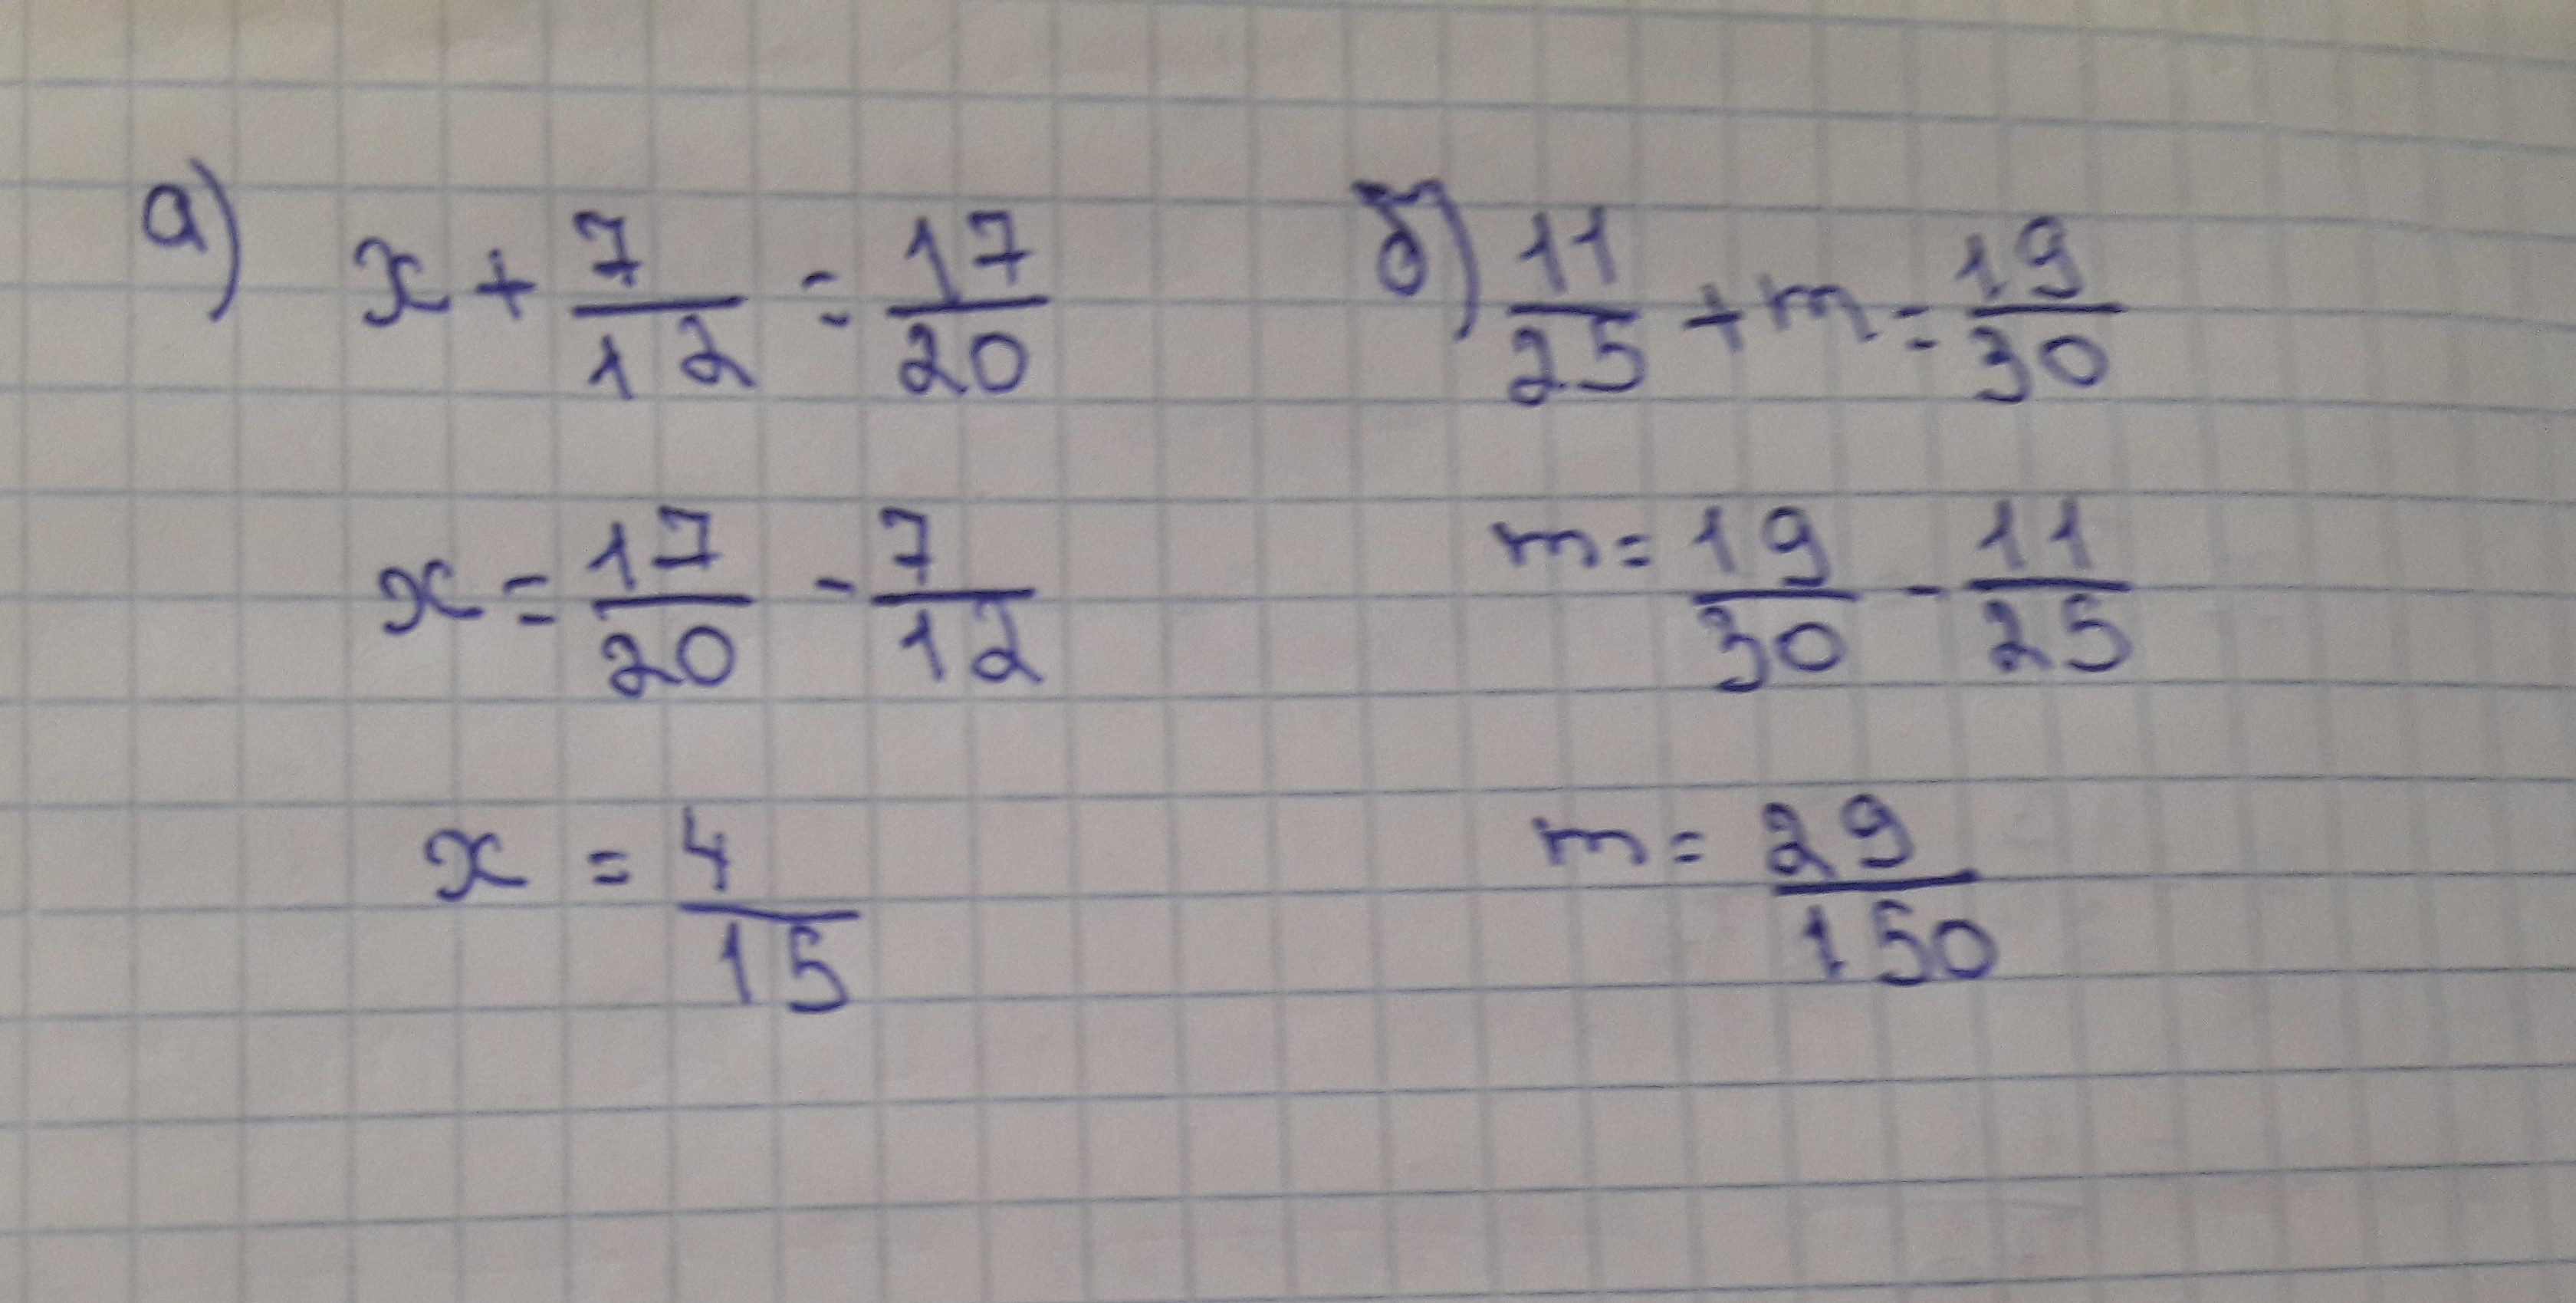 а) x + 7/12 = 17/20
x = 17/20 - 7/12
x = 4/15
б) 11/25 + m = 19/30
m = 19/30 - 11/25
m = 29/150